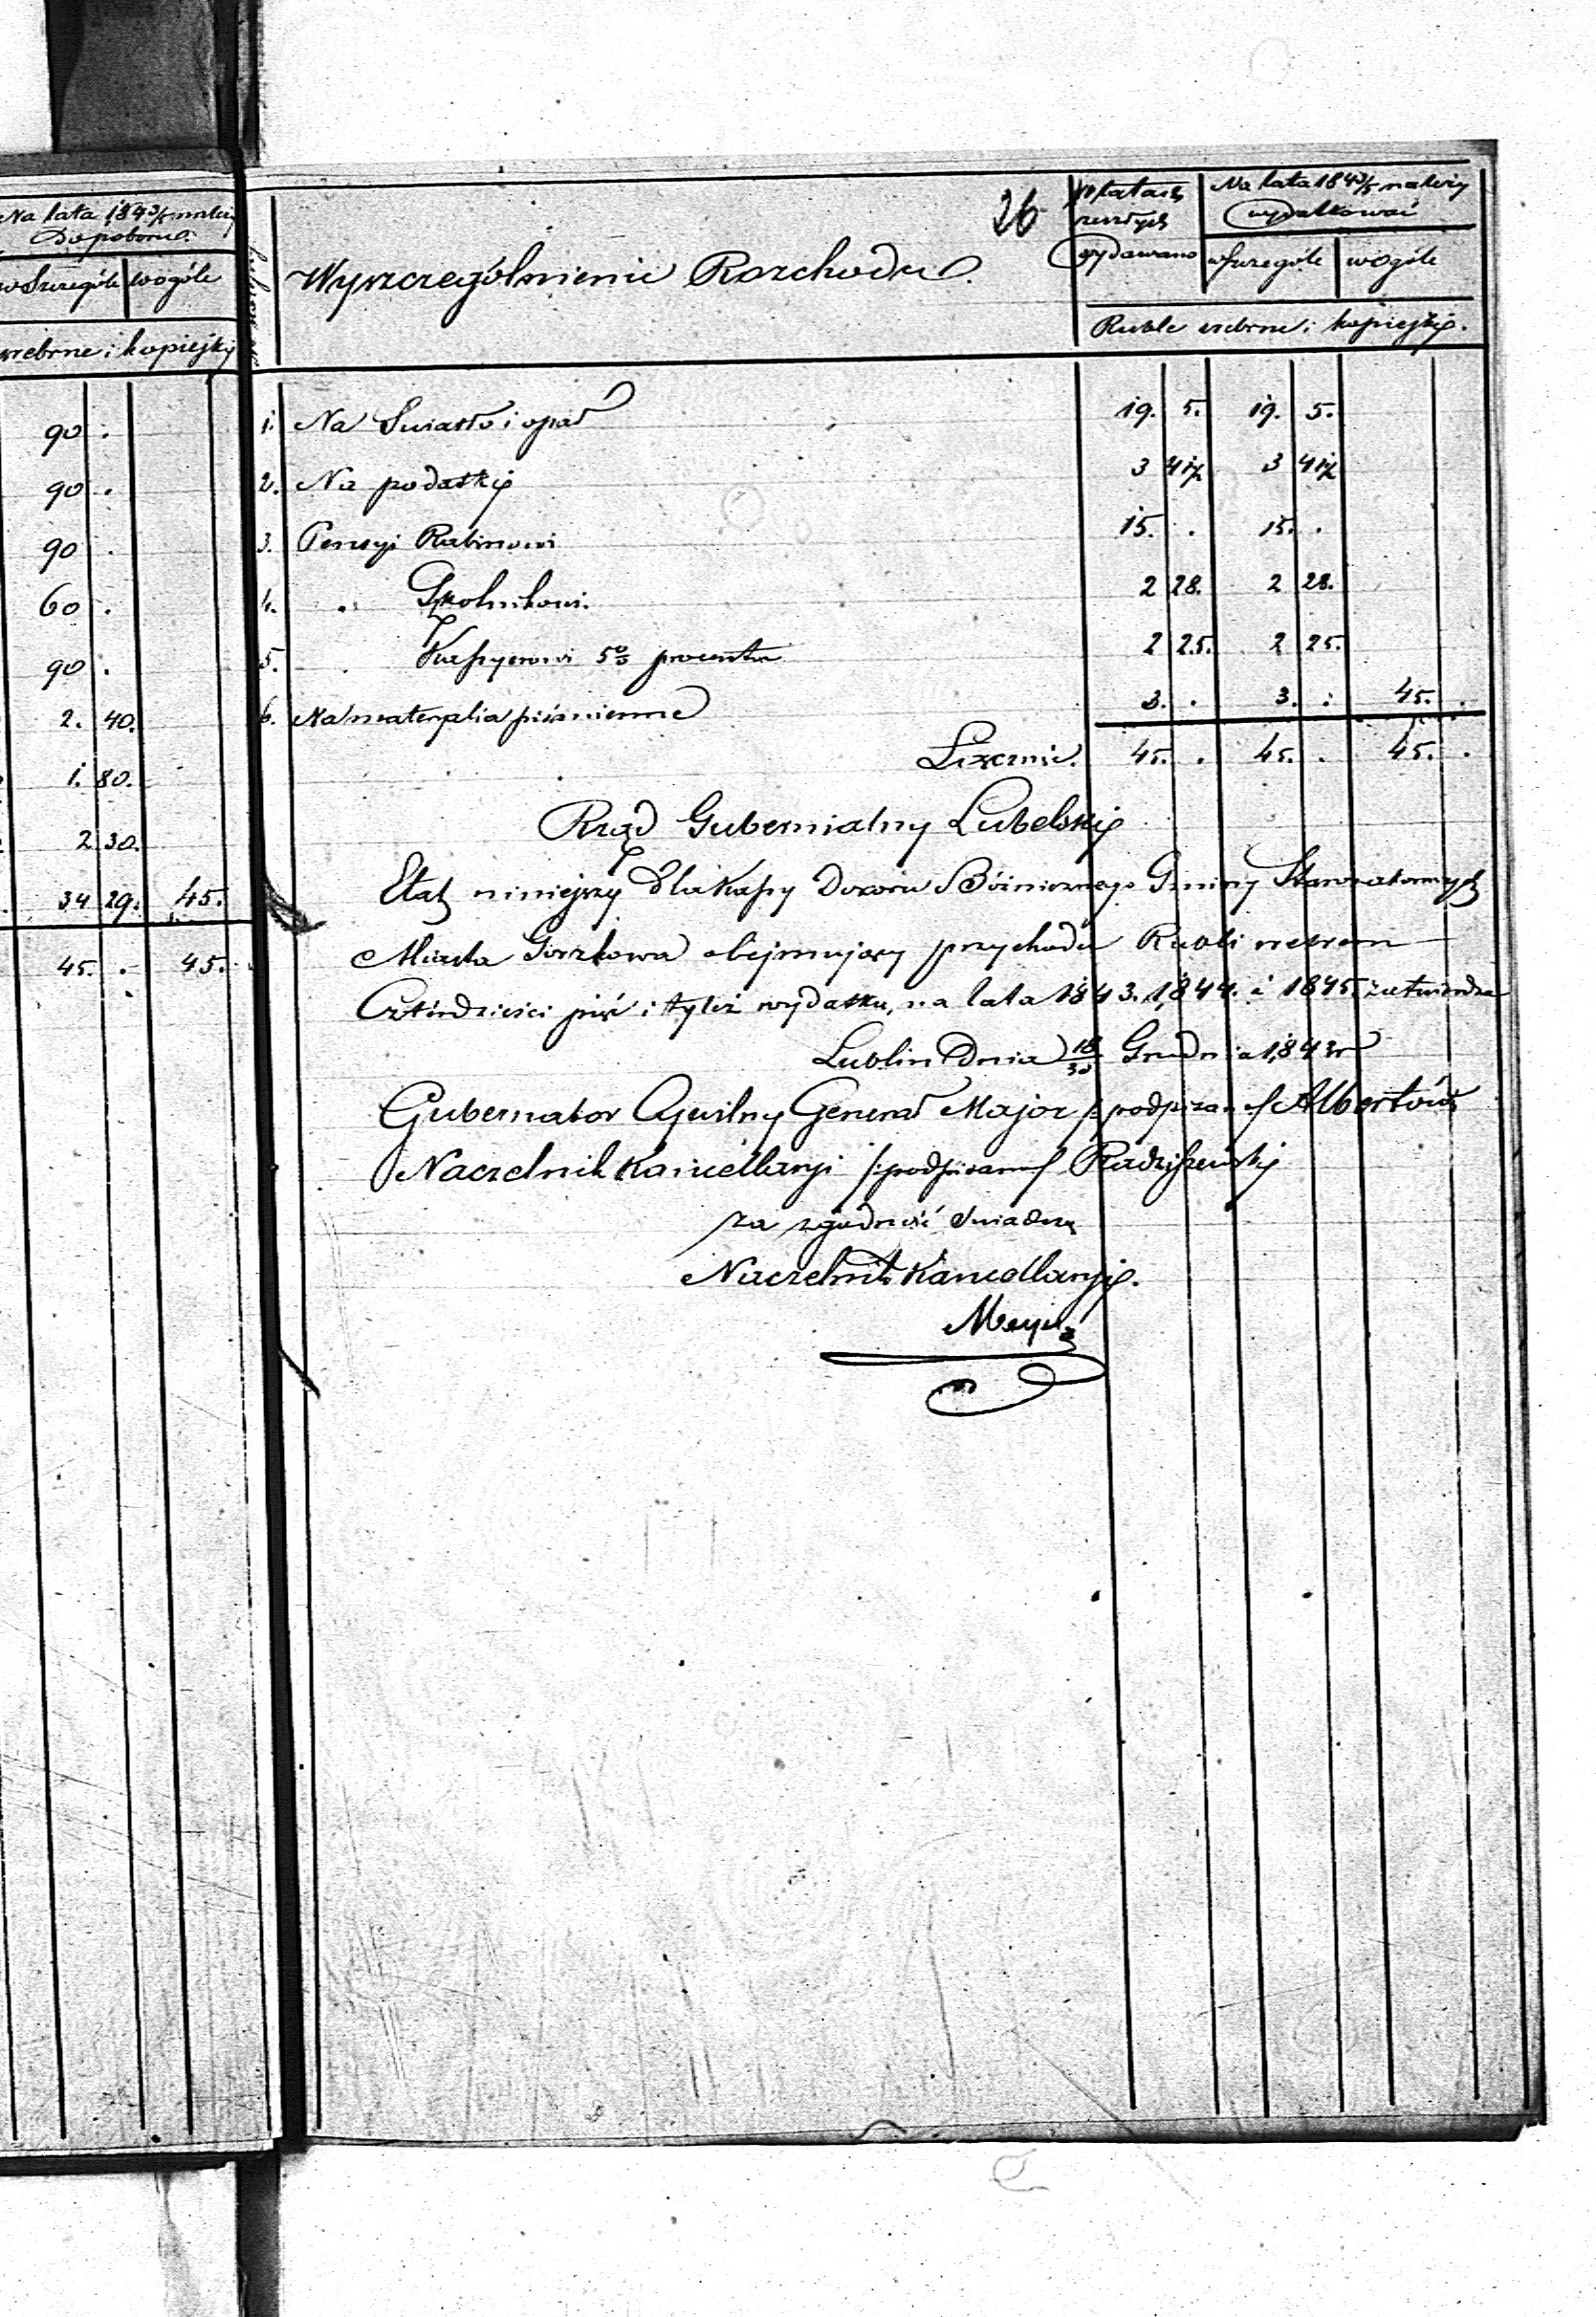 Na lata 1843/5 należy
Do poboru.
w Szczególe wogóle
srebrne i kopiejki
90 .
90 .
90 .
60 .
90 .
2. 40.
1. 80.
2 30.
34 29. 45.
45. . 45.
26
Wyszczególnienie Rozchodu.
W latach zeszłych wydawano
Na lata 1843/5 należy wydatkować
w Szczególe wogóle
Ruble srebrne i kopiejki.
1. Na Swiatło i opał 19. 5. 19. 5.
2. Na podatki 3 41½ 3 41½
3. Pensyi Rabinowi 15. . 15. .
4. " Szkolnikowi. 2 28. 2 28.
5. " Kassyerowi 5% procentu 2 25. 2 25.
6. Na materyalia piśmienne 3. . 3. . 45. .
Łącznie. 45. . 45. . 45. .
Rząd Gubernialny Lubelski
Etat niniejszy dla Kassy Dozoru Bóżniczego Gminy Starozakonnych
Miasta Gorzkowa obejmujący przychodu Rubli srebrem
Czterdzieści pięć i tyleż wydatku, na lata 1843. 1844. i 1845 zatwierdza
Lublin Dnia 18/30 Grudnia 1843r
Gubernator Cywilny Generał Major /: podpisan :/ Albertów
Naczelnik Kancellaryi /: podpisany :/ Radziszewski
za zgodność świadczy
Naczelnik Kancellaryi.